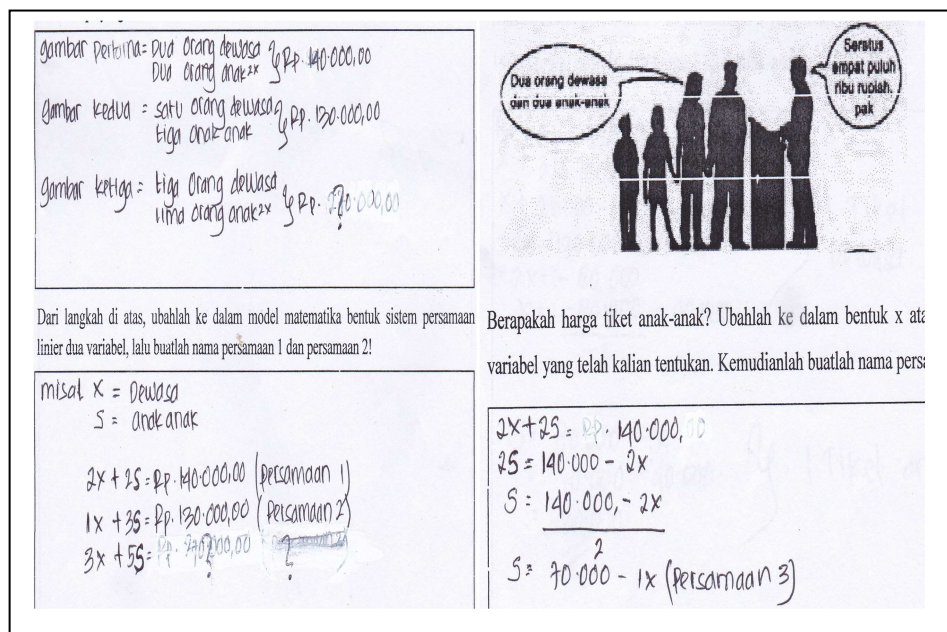 gambar pertama = Dua orang dewasa
Dua orang anak2x } Rp. 140.000,00
gambar kedua = satu orang dewasa
tiga anak anak } Rp. 130.000,00
gambar ketiga = tiga orang dewasa
lima orang anak2x } Rp. ?
Dari langkah di atas, ubahlah ke dalam model matematika bentuk sistem persamaan
linier dua variabel, lalu buatlah nama persamaan 1 dan persamaan 2!
misal X = Dewasa
S = anak anak
2X + 2S = Rp. 140.000,00 (persamaan 1)
1X + 3S = Rp. 130.000,00 (persamaan 2)
3X + 5S = ? ?
Dua orang dewasa
dan dua anak-anak
Seratus
empat puluh
ribu rupiah,
pak
Berapakah harga tiket anak-anak? Ubahlah ke dalam bentuk x ata
variabel yang telah kalian tentukan. Kemudianlah buatlah nama persa
2X + 2S = Rp. 140.000,00
2S = 140.000 - 2X
S = 140.000, - 2X
2
S = 70.000 - 1X (persamaan 3)